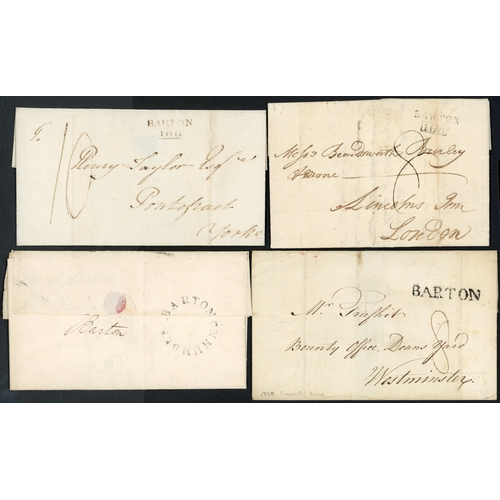 BARTON
166
10
Henry Taylor Esqre
Pontefract
Yorks
BARTON
Messrs Beardsworth Burley
& Moore
Lincolns Inn
London
Barton
BARTON ON HUMBER
BARTON
8
Bounty Office, Deans Yard
Westminster.